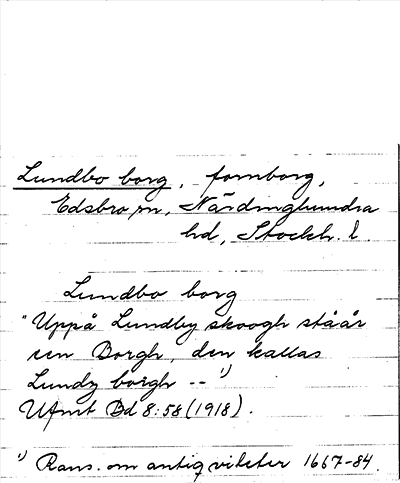 Lundbo borg, fornborg,
Edsbro sn, Närdinghundra
hd, Stockh. l.
Lundbo borg
"Uppå Lundby skoogh stâår
een Borgh, den kallas
Lundy borgh -- 1)
Ufmt Bd 8:58 (1918).
1) Rans. om antiqviteter 1667-84.